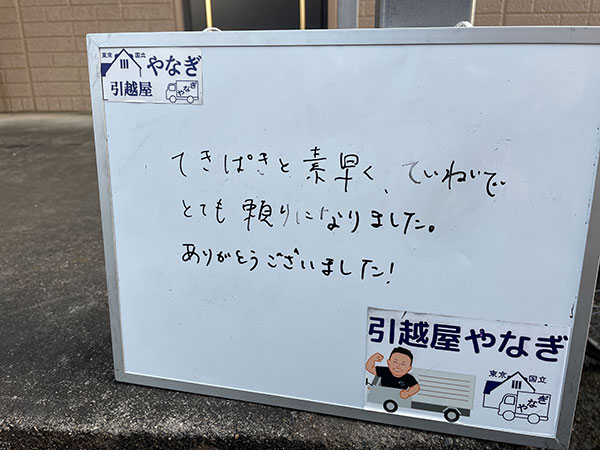 東京 国立 やなぎ
引越屋 やなぎ
てきぱきと素早く、ていねいで
とても頼りになりました。
ありがとうございました!
引越屋やなぎ
東京 国立
やなぎ